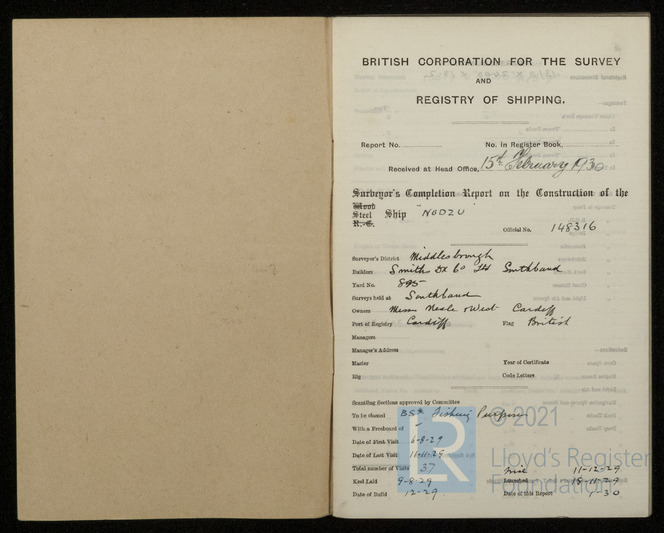 BRITISH CORPORATION FOR THE SURVEY
AND
REGISTRY OF SHIPPING.
Report No. No. in Register Book,
Received at Head Office, 15th February 1930
Surveyor's Completion Report on the Construction of the
Wood
Steel Ship "NODZU"
R. C.
Official No. 148316
Surveyor's District Middlesbrough
Builders Smiths Dk Co Ltd Southbank
Yard No. 895
Surveys held at Southbank
Owners Messrs Neale & West Cardiff
Port of Registry Cardiff Flag British
Managers
Manager's Address
Master Year of Certificate
Rig Code Letters
Scantling Sections approved by Committee
To be classed BS* Fishing Purposes
With a Freeboard of -
Date of First Visit 6-8-29
Date of Last Visit 11-11-29
Total number of Visits 37 11-12-29
Keel Laid 9-8-29 Launched 18-11-29
Date of Build 12-29 Date of this Report 1-30
© 2021
LR
Lloyd's Register
Foundation